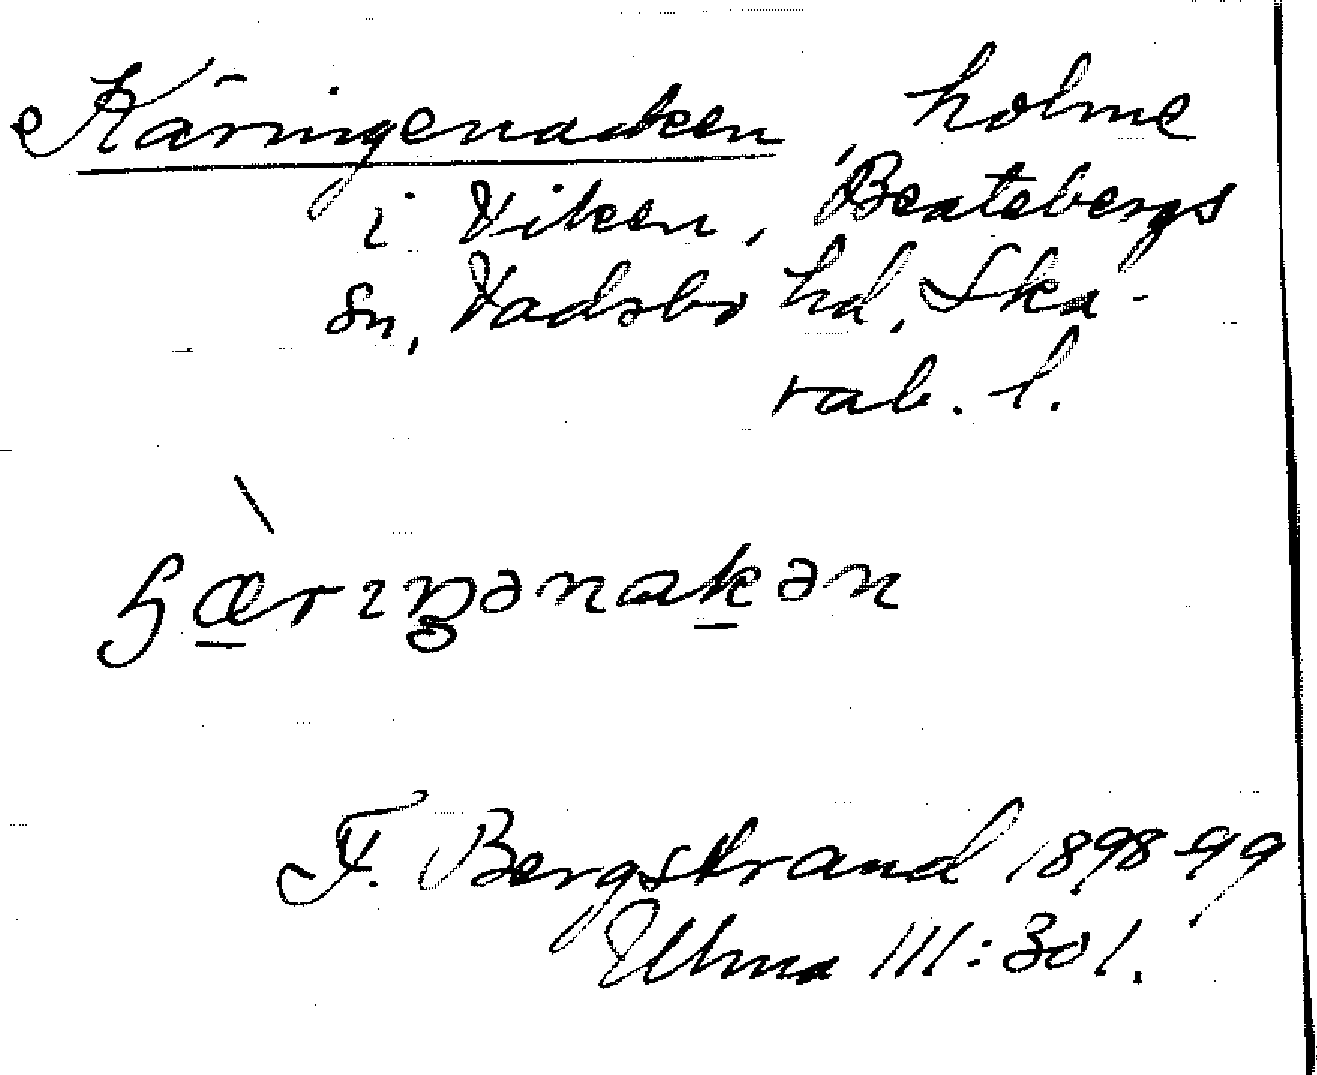 Käringenacken, holme
i Viken, Beatebergs
sn, Vadsbo hd, Ska-
rab. l.
F. Bergstrand 1898-99
Ulma 111:301.